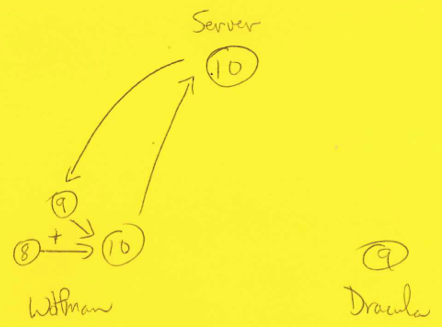 Server
10
9
+
8 10 9
Wolfman Dracula